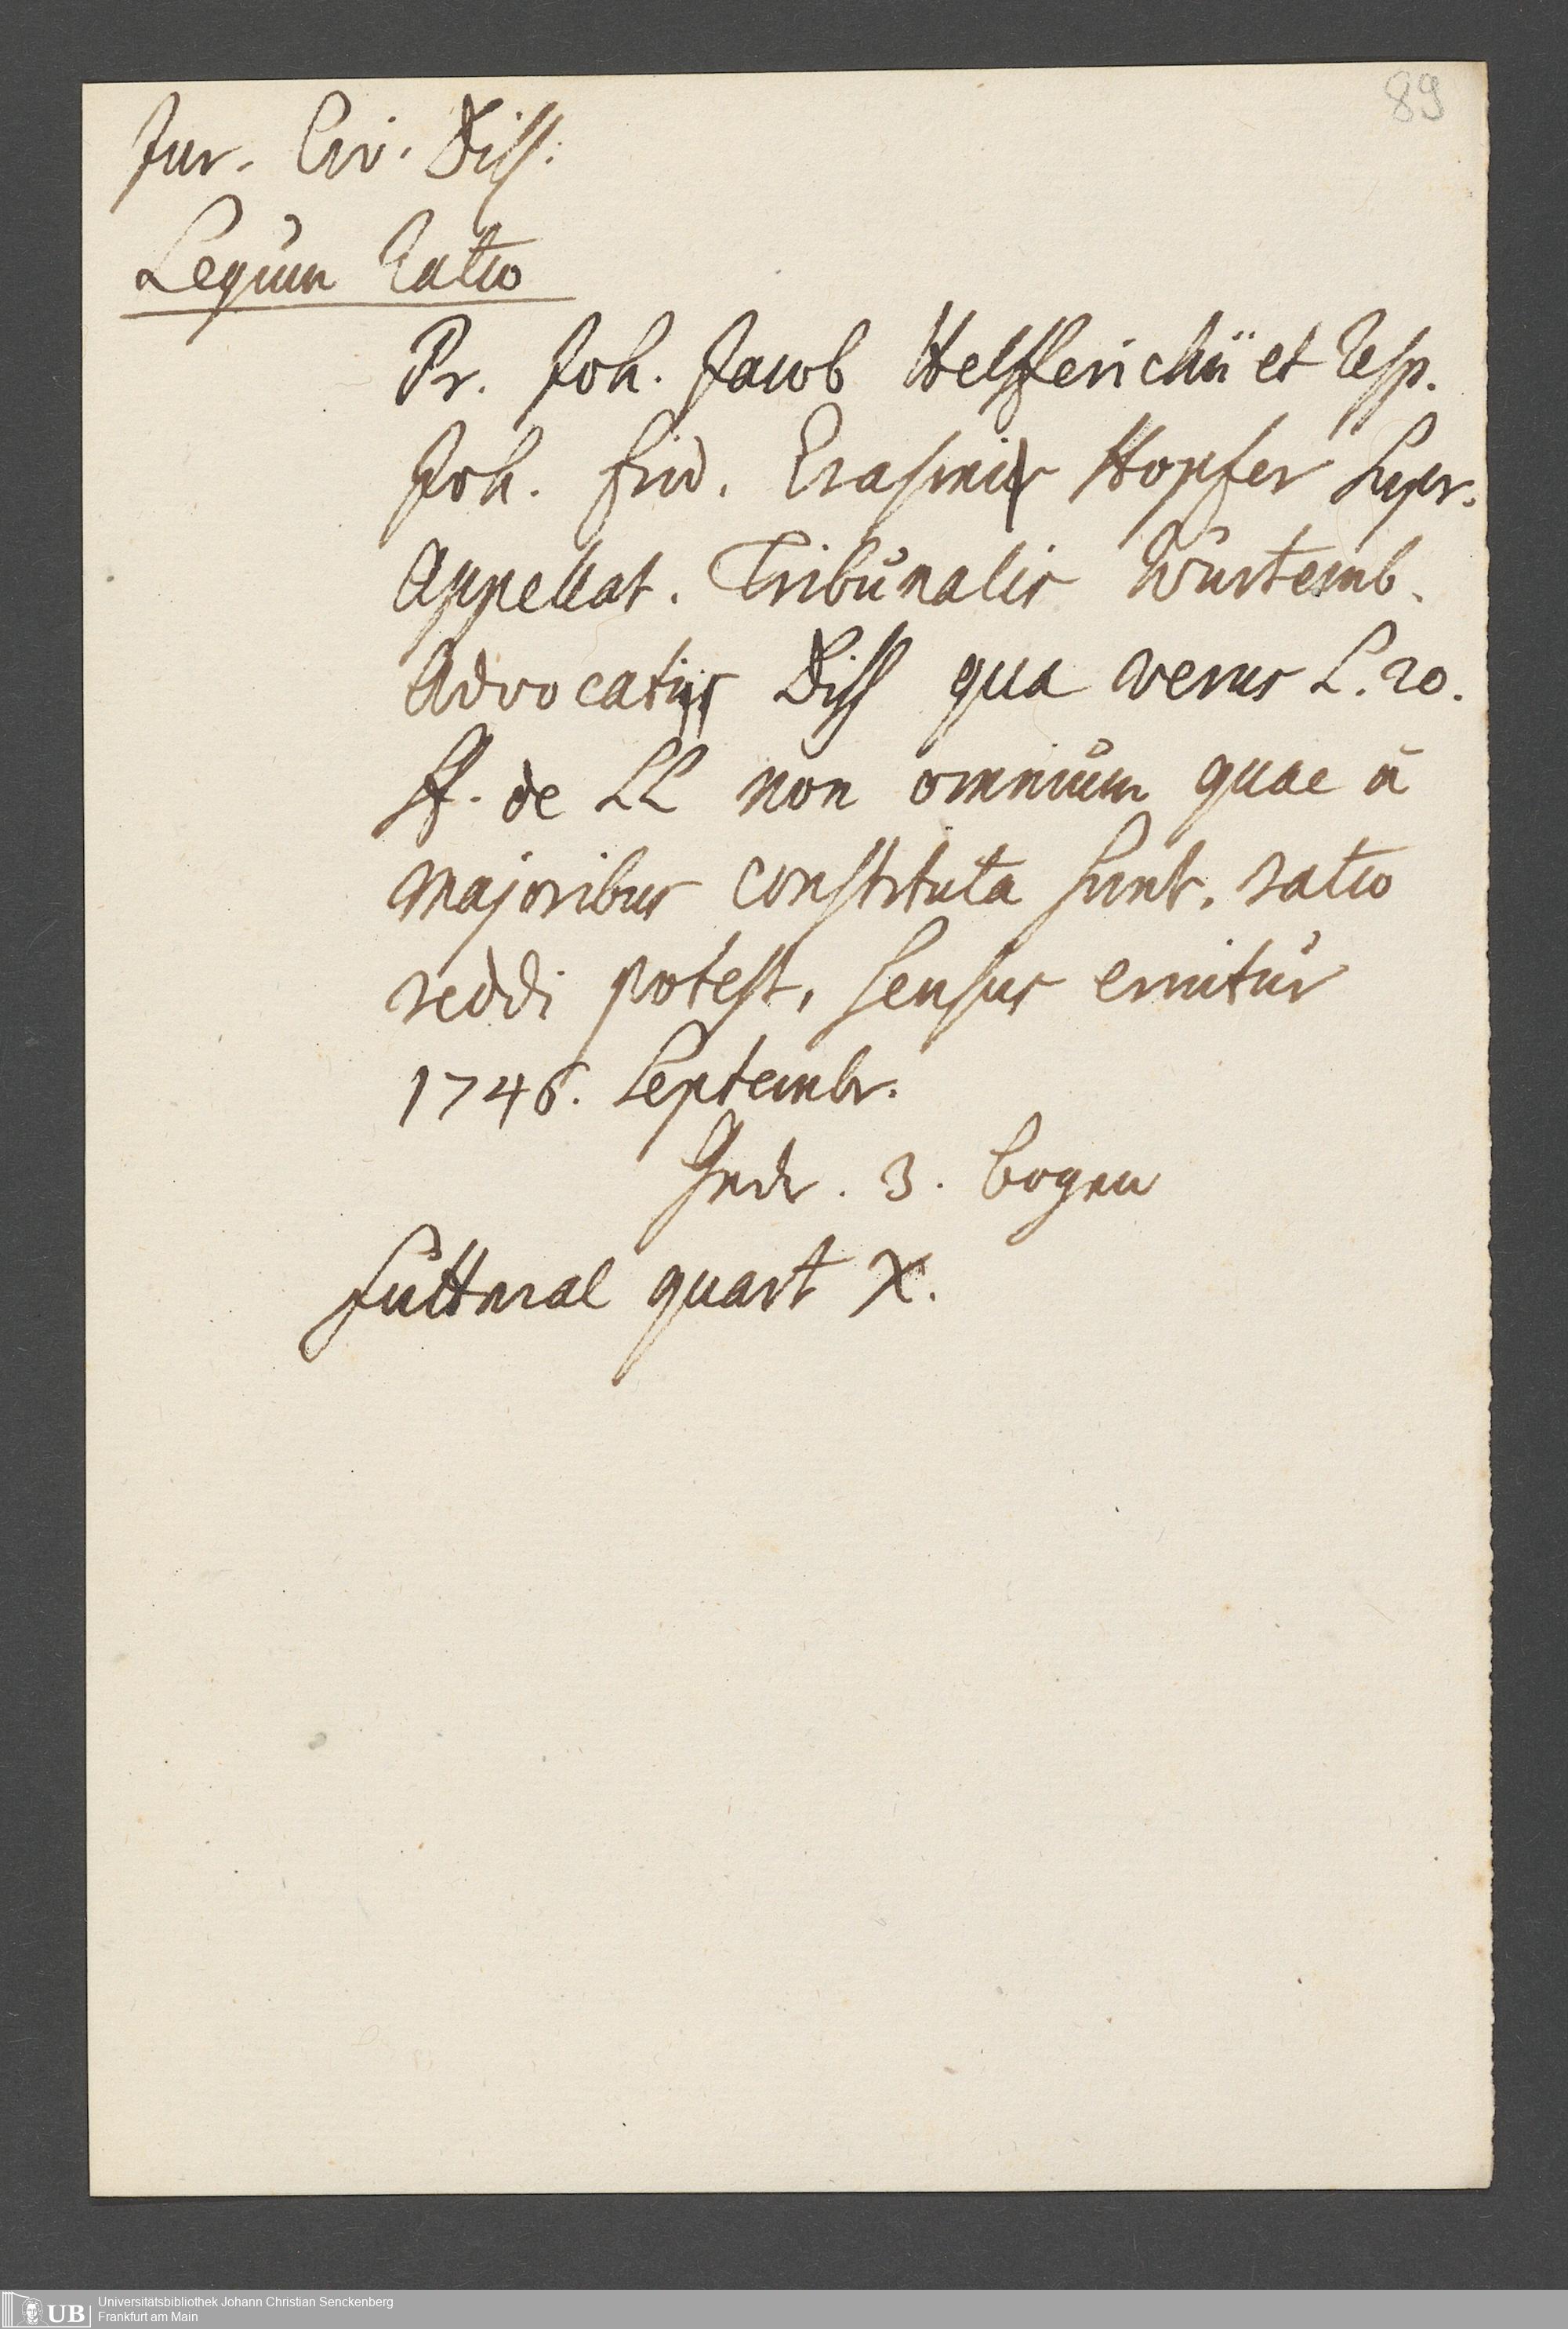 89
Jur. Civ. Diss.
Legum Ratio
Pr. Joh. Jacob Helfferichii et Resp.
Joh. Frid. Erasmi Hopfer Supr.
Appellat. Tribunalis Würtemb.
Advocatus Diss qua verus L. 20.
ff. de LL non omnium quae à
majoribus constituta sunt, ratio
reddi potest, sensus eruitur
1746. Septembr.
3. bogen
Futteral quart X.
UB
Universitätsbibliothek Johann Christian Senckenberg
Frankfurt am Main